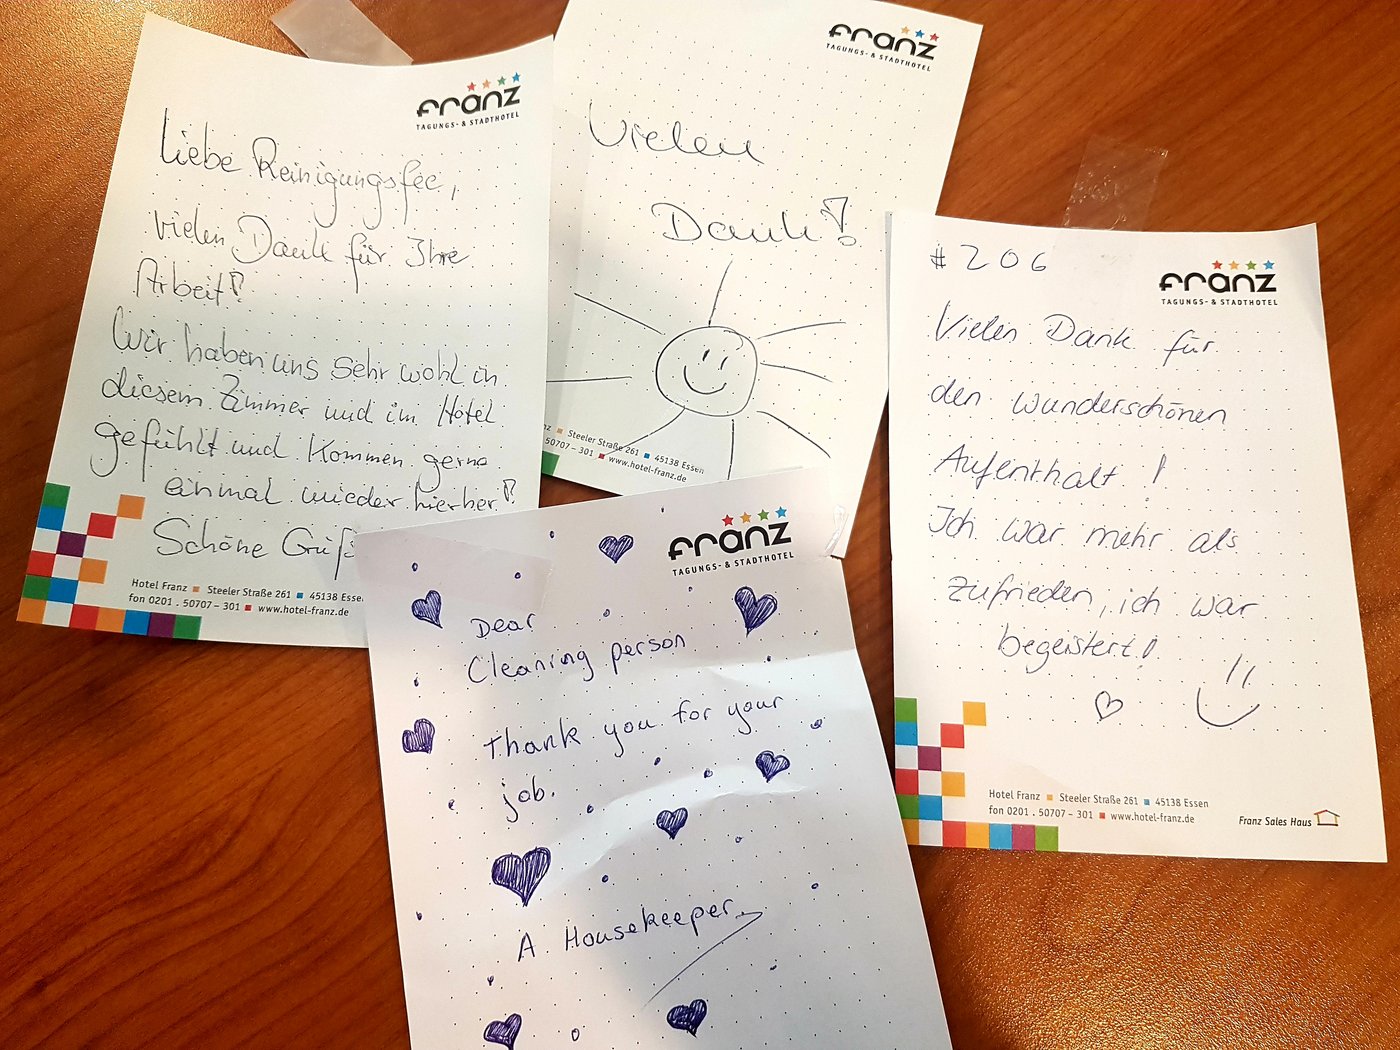 franz
TAGUNGS- & STADTHOTEL
Liebe Reinigungsfee,
vielen Dank für Ihre
Arbeit!
Wir haben uns sehr wohl in
diesem Zimmer und im Hotel
gefühlt und kommen gerne
einmal wieder hierher!
Schöne Grüß
Hotel Franz Steeler Straße 261 45138 Essen
fon 0201 . 50707 – 301 www.hotel-franz.de
franz
TAGUNGS- & STADTHOTEL
Vielen
Dank!
nz Steeler Straße 261 45138 Essen
50707 – 301 www.hotel-franz.de
franz
TAGUNGS- & STADTHOTEL
Dear
Cleaning person
Thank you for your
job.
A Housekeeper
#206
franz
TAGUNGS- & STADTHOTEL
Vielen Dank für
den wunderschönen
Aufenthalt!
Ich war mehr als
zufrieden, ich war
begeistert!
Hotel Franz Steeler Straße 261 45138 Essen
fon 0201 . 50707 – 301 www.hotel-franz.de
Franz Sales Haus